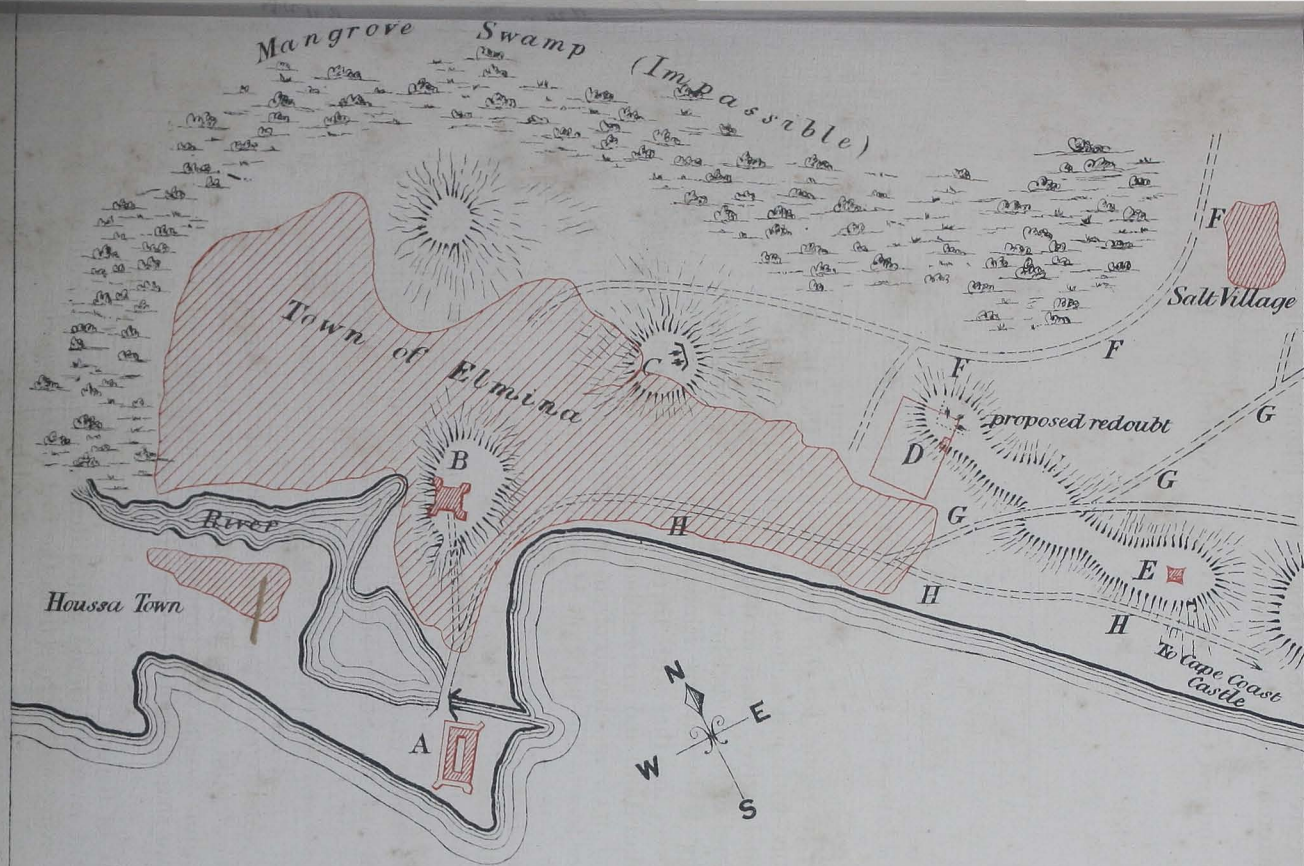 Mangrove Swamp (Impassible)
F
Salt Village
Town of Elmina
C
F
F
G
proposed redoubt
D
B
G
G
River
H
E
Houssa Town
H
H
To Cape Coast
Castle
N
E
A
W
S